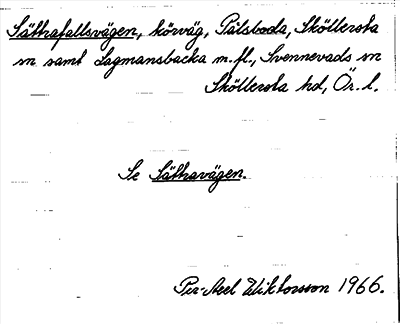 Säthrafallsvägen, körväg, Pålsboda, Sköllersta
sn samt Lagmansbacka m.fl., Svennevads sn
Sköllersta hd, Ör. l.
Se Säthravägen.
Per-Axel Wiktorsson 1966.